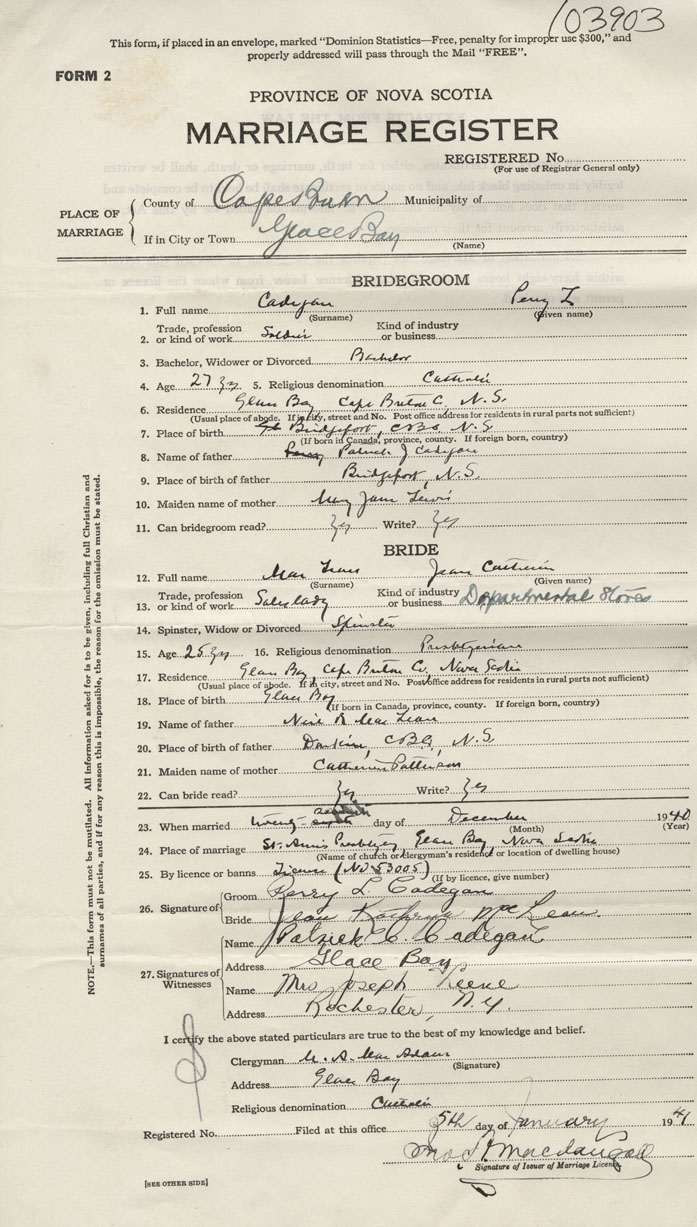 103903
This form, if placed in an envelope, marked "Dominion Statistics—Free, penalty for improper use $300," and
properly addressed will pass through the Mail "FREE".
FORM 2
PROVINCE OF NOVA SCOTIA
MARRIAGE REGISTER
REGISTERED No.
(For use of Registrar General only)
PLACE OF MARRIAGE
County of Cape Breton Municipality of
If in City or Town Glace Bay
(Name)
BRIDEGROOM
1. Full name Cadegan Perry L
(Surname) (Given name)
2. Trade, profession or kind of work Soldier Kind of industry or business
3. Bachelor, Widower or Divorced Bachelor
4. Age 27 yrs 5. Religious denomination Catholic
6. Residence Glace Bay Cape Breton C, N.S.
(Usual place of abode. If in city, street and No. Post office address for residents in rural parts not sufficient)
7. Place of birth Bridgeport, C.B.Co, N.S.
(If born in Canada, province, county. If foreign born, country)
8. Name of father Patrick J Cadegan
9. Place of birth of father Bridgeport, N.S.
10. Maiden name of mother Mary Jane Lewis
11. Can bridegroom read? Yes Write? Yes
BRIDE
12. Full name MacLean Jean Catherine
(Surname) (Given name)
13. Trade, profession or kind of work Saleslady Kind of industry or business Departmental Stores
14. Spinster, Widow or Divorced Spinster
15. Age 25 yrs 16. Religious denomination Presbyterian
17. Residence Glace Bay, Cape Breton Co, Nova Scotia
(Usual place of abode. If in city, street and No. Post office address for residents in rural parts not sufficient)
18. Place of birth Glace Bay
(If born in Canada, province, county. If foreign born, country)
19. Name of father MacLean
20. Place of birth of father C.B.Co, N.S.
21. Maiden name of mother Catherine Patterson
22. Can bride read? Yes Write? Yes
23. When married twenty- day of December 1940
(Month) (Year)
24. Place of marriage St. Anns Glace Bay, Nova Scotia
(Name of church or clergyman's residence or location of dwelling house)
25. By licence or banns License (No 53005)
(If by licence, give number)
26. Signature of
Groom Perry L. Cadegan
Bride Jean Kathryn MacLean.
27. Signatures of Witnesses
Name Patrick C. Cadegan
Address Glace Bay
Name Mrs Joseph
Address Rochester, N.Y.
I certify the above stated particulars are true to the best of my knowledge and belief.
Clergyman M. A. MacAdam
(Signature)
Address Glace Bay
Religious denomination Catholic
Registered No. Filed at this office 5th day of January 1941
MacDougall
Signature of Issuer of Marriage Licence
[SEE OTHER SIDE]
NOTE.—This form must not be mutilated. All information asked for is to be given, including full Christian and
surnames of all parties, and if for any reason this is impossible, the reason for the omission must be stated.